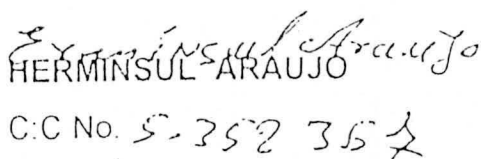 Erminsul Araujo
HERMINSUL ARAUJO
C:C No. 5.352 357